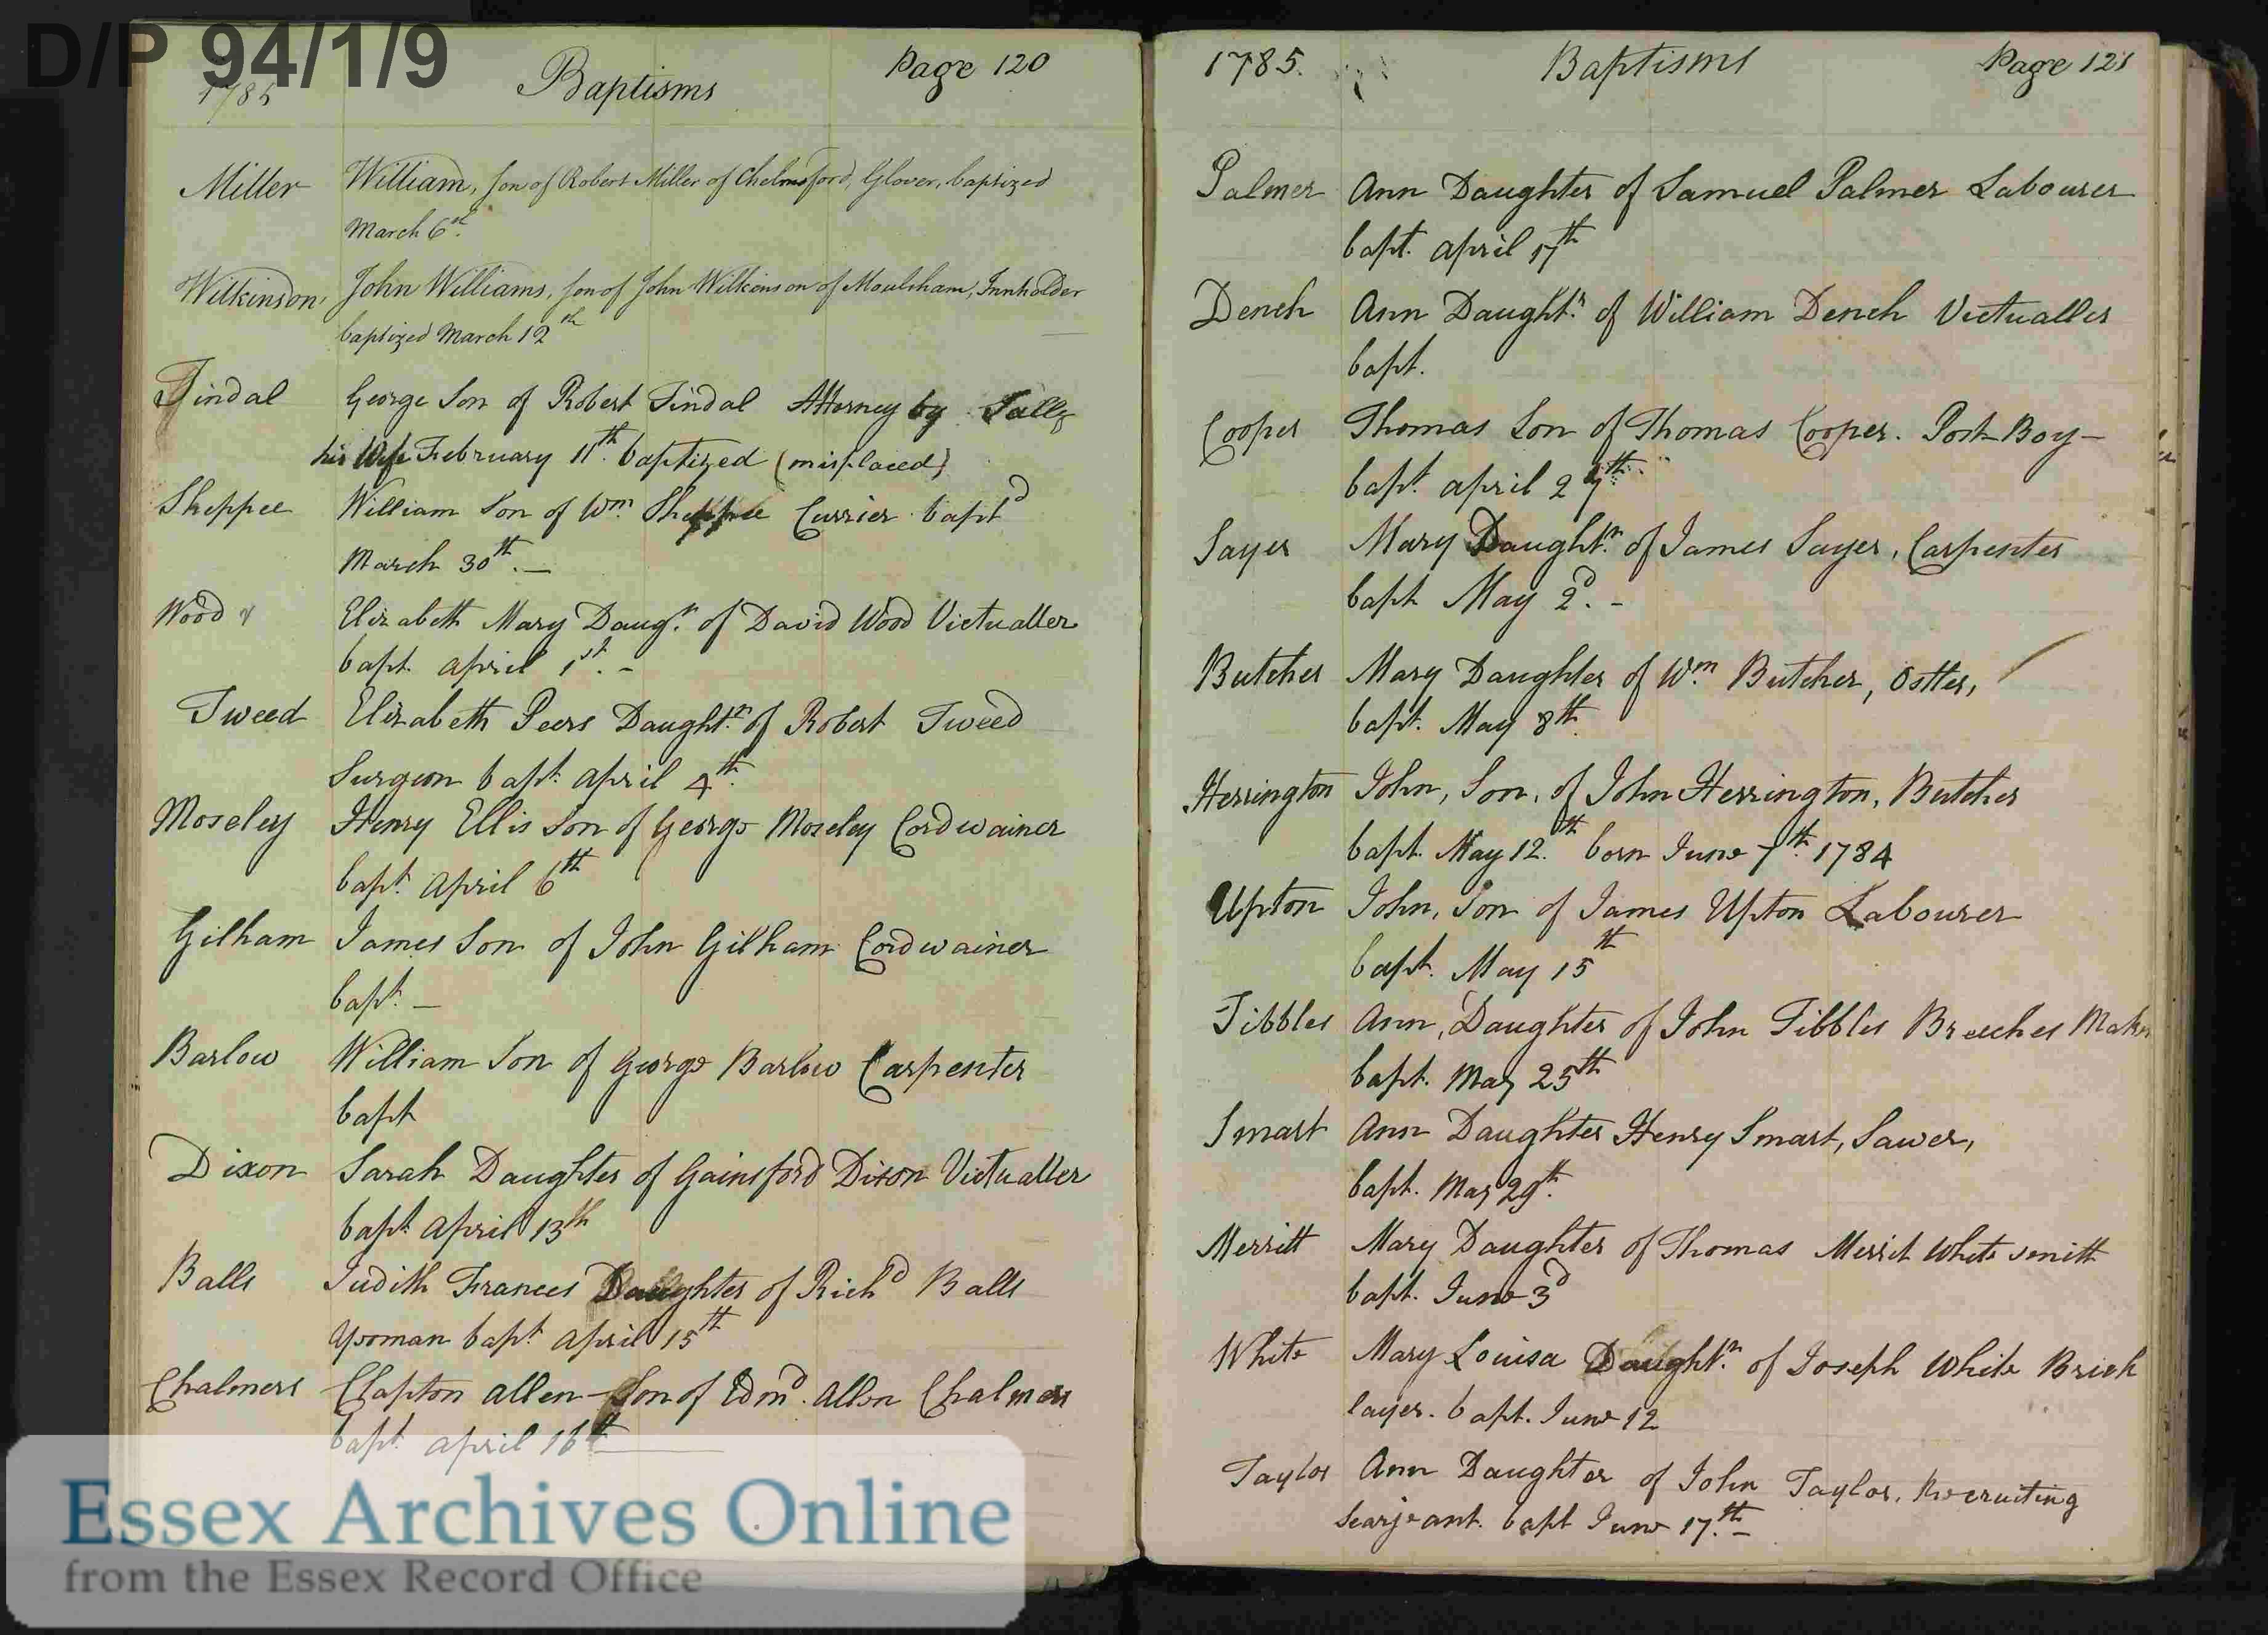 D/P 94/1/9
1785 Baptisms Page 120
Miller William, son of Robert Miller of Chelmsford, Glover, baptized
March 6th
Wilkinson John Williams, son of John Wilkinson of Moulsham, Innholder
baptized March 12th
Tindal George Son of Robert Tindal Attorney by Sally
his Wife February 11th. baptized (misplaced)
Sheppee William Son of Wm. Sheppee Currier baptd
March 30th. —
Wood Elizabeth Mary Daugr. of David Wood Victualler
bapt. april 1st. -
Tweed Elizabeth Peers Daughtr. of Robert Tweed
Surgeon bapt. april 4th.
Moseley Henry Ellis Son of George Moseley Cordwainer
bapt. april 6th
Gilham James Son of John Gilham Cordwainer
bapt. —
Barlow William Son of George Barlow Carpenter
bapt
Dixon Sarah Daughter of Gainsford Dixon Victualler
bapt. april 13th
Balls Judith Frances Daughter of Richd Balls
Yeoman bapt. april 15th
Chalmers Clapton allen - Son of Edmd. Allen Chalmers
bapt. april 16th
Essex Archives Online
from the Essex Record Office
1785. Baptisms Page 121
Palmer Ann Daughter of Samuel Palmer Labourer
bapt. april 17th
Dench Ann Daughtr. of William Dench Victualler
bapt.
Cooper Thomas Son of Thomas Cooper. Post Boy -
bapt. april 27th.
Sayer Mary Daughtr. of James Sayer, Carpenter
bapt May 2d. -
Butcher Mary Daughter of Wm. Butcher, Ostler,
bapt. May 8th.
Herrington John, Son, of John Herrington, Butcher
bapt. May 12.th born June 7th. 1784
Upton John, Son of James Upton Labourer
bapt. May 15th
Tibbles Ann, Daughter of John Tibbles Breeches Maker
bapt. May 25th
Smart Ann Daughter Henry Smart, Sawer,
bapt. May 29th.
Merritt Mary Daughter of Thomas Merrit White smith
bapt. June 3d
White Mary Louisa Daughtr. of Joseph White Brick
layer. bapt. June 12
Taylor Ann Daughter of John Taylor, Recruiting
Searjeant. bapt June 17.th -